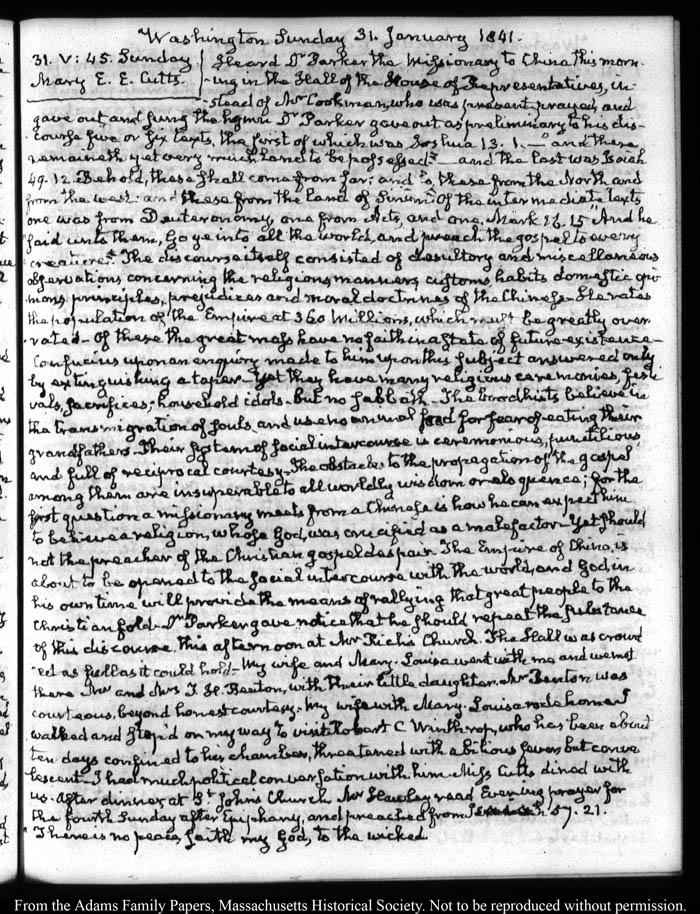 Washington Sunday 31. January 1841.
31. V: 45. Sunday
Mary E. E. Cutts.
Heard Dr Parker the Missionary to China this morn-
-ing in the Hall of the House of Representatives, in-
-stead of Mr Cookman, who was present prayed, and
gave out and sung the hymn Dr Parker gave out as preliminary to his dis-
course five or six texts, the first of which was Joshua 13. 1. — "and there
remaineth yet very much land to be possessed" — and the last was Isaiah
49. 12. Behold, these shall come from far: and lo, these from the North and
from the west: and these from the land of Sinim. Of the intermediate texts
one was from Deuteronomy, one from Acts, and one, Mark 16. 15 "And he
said unto them, Go ye into all the world, and preach the gospel to every
creature". The discourse itself consisted of desultory and miscellaneous
observations concerning the religion, manners, customs habits domestic opi-
nions, principles, prejudices and moral doctrines of the Chinese - He rates
the population of the Empire at 360 Millions, which must be greatly over
rated - Of these the great mass have no faith in a State of future existence -
Confucius upon an enquiry made to him upon this subject answered only
by extinguishing a taper - Yet they have many religious ceremonies, festi-
vals, sacrifices, household idols - but no sabbath. The Boodhists believe in
the transmigration of souls, and use no animal food for fear of eating their
grandfathers. Their system of social intercourse is ceremonious, punctilious
and full of reciprocal courtesy - The obstacles to the propagation of the gospel
among them are insuperable to all worldly wisdom or eloquence; for the
first question a missionary meets from a Chinese is how he can expect him
to believe a religion, whose God, was crucified as a malefactor - Yet should
not the preacher of the Christian gospel despair. The Empire of China, is
about to be opened to the social intercourse with the world, and God, in
his own time will provide the means of rallying that great people to the
Christian fold - Dr Parker gave notice that he should repeat the substance
of this discourse this afternoon at Mr Rich's Church. The Hall was crowd
ed as full as it could hold - My wife and Mary-Louisa went with me and we met
there Mr and Mrs T. H. Benton, with their little daughter. Mr Benton was
courteous, beyond honest courtesy. My wife with Mary-Louisa rode home I
walked and stop'd on my way to visit Robert C Winthrop, who has been about
ten days confined to his chamber, threatened with a bilious fever but conva
lescent - I had much political conversation with him. Miss Cutts dined with
us. After dinner, at St John's Church Mr Hawley read Evening prayer for
the fourth Sunday after Epiphany, and preached from Isaiah 57. 21.
"There is no peace, saith my God, to the wicked.
From the Adams Family Papers, Massachusetts Historical Society. Not to be reproduced without permission.